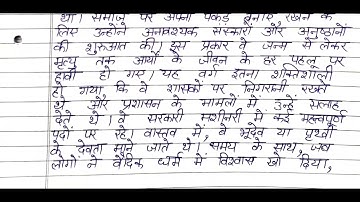 था। समाज पर अपनी पकड़ बनाए रखने के
लिए उन्होंने अनावश्यक संस्कारों और अनुष्ठानों
की शुरुआत की। इस प्रकार वे जन्म से लेकर
मृत्यु तक आर्यों के जीवन के हर पहलू पर
हावी हो गए। यह वर्ग इतना शक्तिशाली
हो गया, कि वे शासकों पर निगरानी रखते
थे और प्रशासन के मामलों में उन्हें सलाह
देते थे। वे सरकारी मशीनरी में कई महत्वपूर्ण
पदों पर रहे। वास्तव में, वे भूदेव या पृथ्वी
के देवता माने जाते थे। समय के साथ, जब
लोगों ने वैदिक धर्म में विश्वास खो दिया,